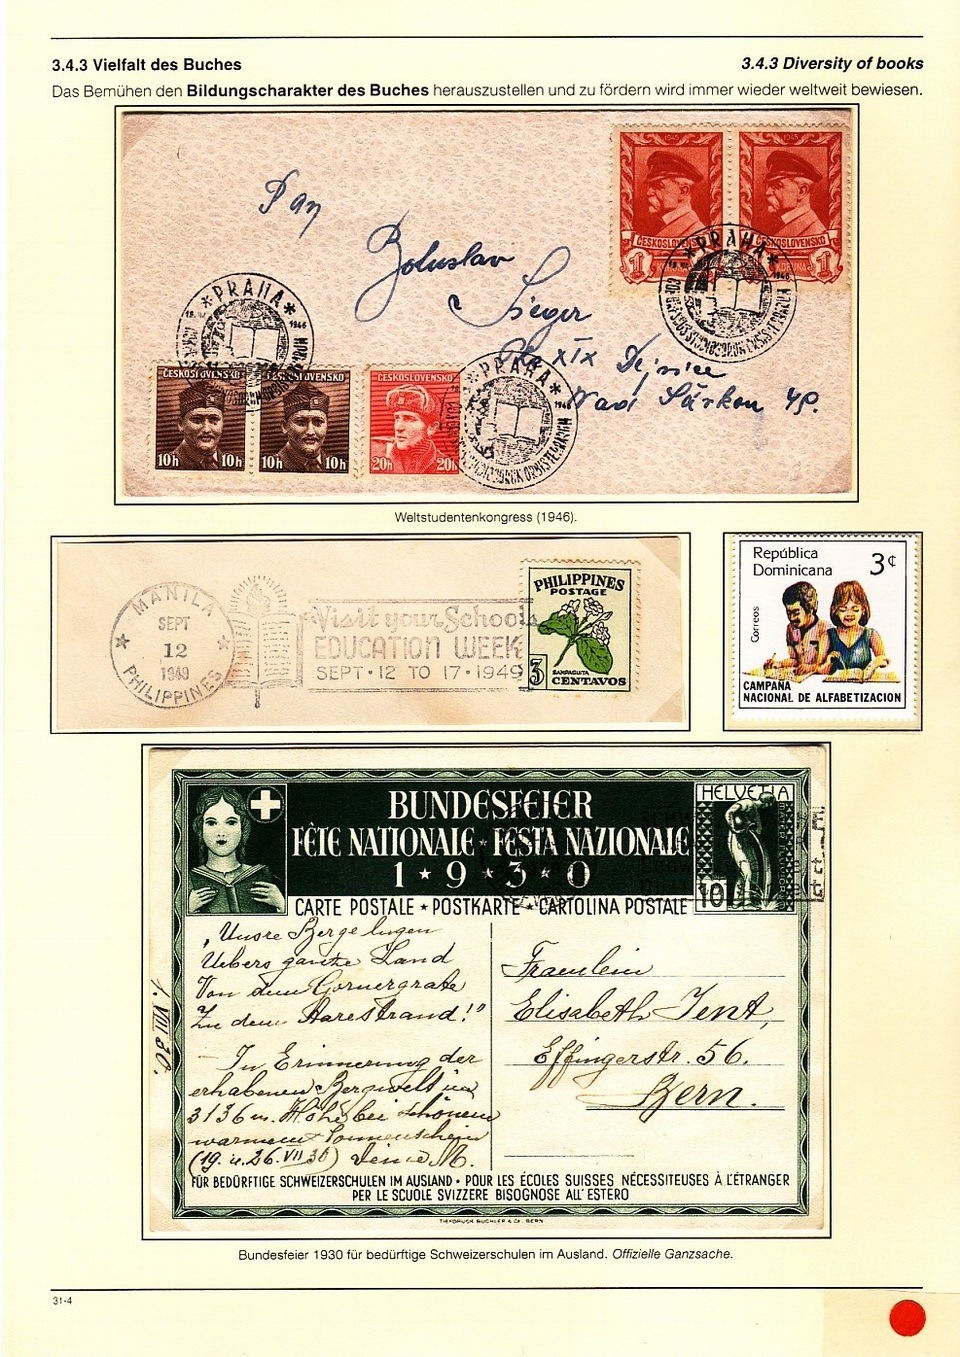 3.4.3 Vielfalt des Buches
3.4.3 Diversity of books
Das Bemühen den Bildungscharakter des Buches herauszustellen und zu fördern wird immer wieder weltweit bewiesen.
1945
1945
ČESKOSLOVENSKO
ČESKOSLOVENSKO
1 KORUNA
KORUNA 1
Pan
Bohuslav
Sieger
XIX Dejvice
Nad Šárkou 49.
*PRAHA*
1946
*PRAHA*
1946
*PRAHA*
1946
ČESKOSLOVENSKO
ČESKOSLOVENSKO
ČESKOSLOVENSKO
10h 10h
10h 10h
20h 20h
Weltstudentenkongress (1946).
MANILA
SEPT
12
1949
PHILIPPINES
Visit your School
EDUCATION WEEK
SEPT·12 TO 17·1949
PHILIPPINES
POSTAGE
SAMPAGUITA
3 CENTAVOS
República
Dominicana
3¢
Correos
CAMPAÑA
NACIONAL DE ALFABETIZACION
BUNDESFEIER
FÊTE NATIONALE ★ FESTA NAZIONALE
1 ★ 9 ★ 3 ★ 0
HELVETIA
10
CARTE POSTALE ★ POSTKARTE ★ CARTOLINA POSTALE
„Unsre Berge lugen
Uebers ganze Land
Von dem Gornergrate
Zu dem Aarestrand!"
– In Erinnerung der
erhabenen Bergwelt in
3136 m. Höhe bei schönem
warmem Sonnenschein
(19. u. 26. VII 30) Deine M.
1. VIII 30.
Fraeulein
Elisabeth Jent,
Effingerstr. 56.
Bern.
FÜR BEDÜRFTIGE SCHWEIZERSCHULEN IM AUSLAND • POUR LES ÉCOLES SUISSES NÉCESSITEUSES À L'ÉTRANGER
PER LE SCUOLE SVIZZERE BISOGNOSE ALL'ESTERO
TIEFDRUCK BÜCHLER & CO. BERN
Bundesfeier 1930 für bedürftige Schweizerschulen im Ausland. Offizielle Ganzsache.
31-4